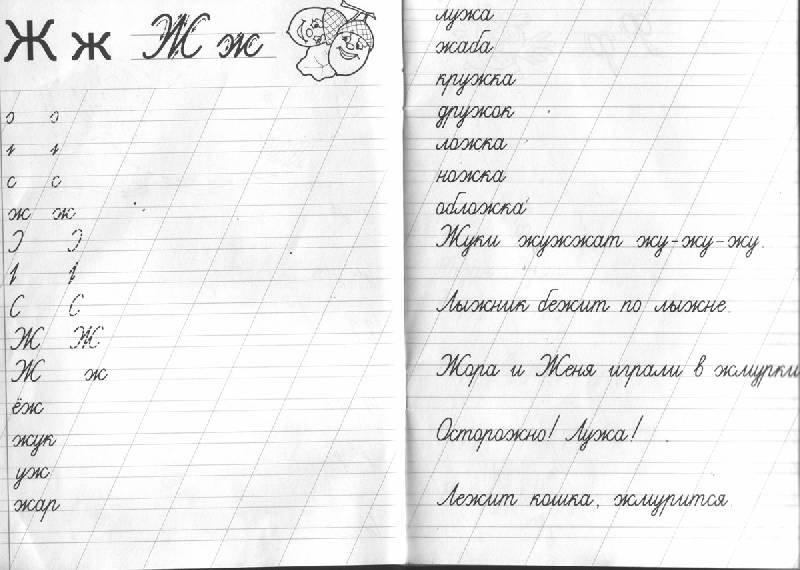 Ж ж Ж ж
ж ж
Ж Ж
Ж ж
ёж
жук
уж
жар
лужа
жаба
кружка
дружок
ложка
ножка
обложка
Жуки жужжат жу-жу-жу.
Лыжник бежит по лыжне.
Жора и Женя играли в жмурки
Осторожно! Лужа!
Лежит кошка, жмурится.